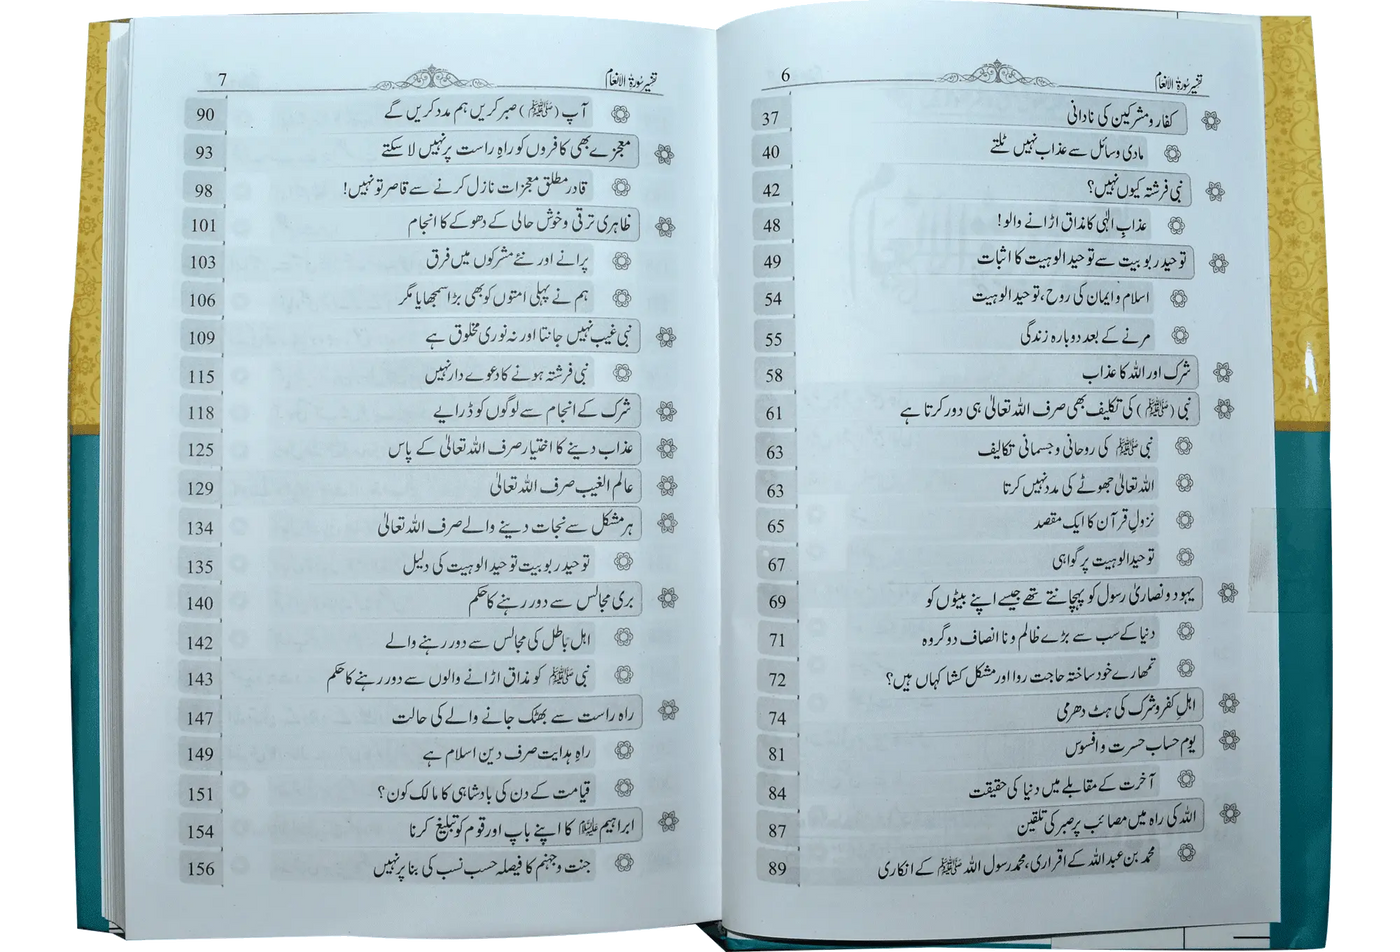 تفسیر سُورۃ الانعام 6
کفار و مشرکین کی نادانی 37
مادی وسائل سے عذاب نہیں ٹلتے 40
نبی فرشتہ کیوں نہیں؟ 42
عذابِ الٰہی کا مذاق اڑانے والو! 48
توحید ربوبیت سے توحید الوہیت کا اثبات 49
اسلام و ایمان کی روح، توحید الوہیت 54
مرنے کے بعد دوبارہ زندگی 55
شرک اور اللہ کا عذاب 58
نبی (ﷺ) کی تکلیف بھی صرف اللہ تعالیٰ ہی دور کرتا ہے 61
نبی ﷺ کی روحانی و جسمانی تکالیف 63
اللہ تعالیٰ جھوٹے کی مدد نہیں کرتا 63
نزولِ قرآن کا ایک مقصد 65
توحید الوہیت پر گواہی 67
یہود و نصاریٰ رسول کو پہچانتے تھے جیسے اپنے بیٹوں کو 69
دنیا کے سب سے بڑے ظالم و نا انصاف دو گروہ 71
تمھارے خود ساختہ حاجت روا اور مشکل کشا کہاں ہیں؟ 72
اہلِ کفر و شرک کی ہٹ دھرمی 74
یومِ حساب حسرت و افسوس 81
آخرت کے مقابلے میں دنیا کی حقیقت 84
اللہ کی راہ میں مصائب پر صبر کی تلقین 87
محمد بن عبداللہ کے اقراری، محمد رسول اللہ ﷺ کے انکاری 89
تفسیر سُورۃ الانعام 7
آپ (ﷺ) صبر کریں ہم مدد کریں گے 90
معجزے بھی کافروں کو راہِ راست پر نہیں لا سکتے 93
قادر مطلق معجزات نازل کرنے سے قاصر تو نہیں! 98
ظاہری ترقی و خوش حالی کے دھوکے کا انجام 101
پرانے اور نئے مشرکوں میں فرق 103
ہم نے پہلی امتوں کو بھی بڑا سمجھایا مگر 106
نبی غیب نہیں جانتا اور نہ نوری مخلوق ہے 109
نبی فرشتہ ہونے کا دعوے دار نہیں 115
شرک کے انجام سے لوگوں کو ڈرایے 118
عذاب دینے کا اختیار صرف اللہ تعالیٰ کے پاس 125
عالم الغیب صرف اللہ تعالیٰ 129
ہر مشکل سے نجات دینے والے صرف اللہ تعالیٰ 134
توحید ربوبیت توحید الوہیت کی دلیل 135
بری مجالس سے دور رہنے کا حکم 140
اہل باطل کی مجالس سے دور رہنے والے 142
نبی ﷺ کو مذاق اڑانے والوں سے دور رہنے کا حکم 143
راہ راست سے بھٹک جانے والے کی حالت 147
راہِ ہدایت صرف دین اسلام ہے 149
قیامت کے دن کی بادشاہی کا مالک کون؟ 151
ابراہیم علیہ السلام کا اپنے باپ اور قوم کو تبلیغ کرنا 154
جنت و جہنم کا فیصلہ حسب نسب کی بنا پر نہیں 156